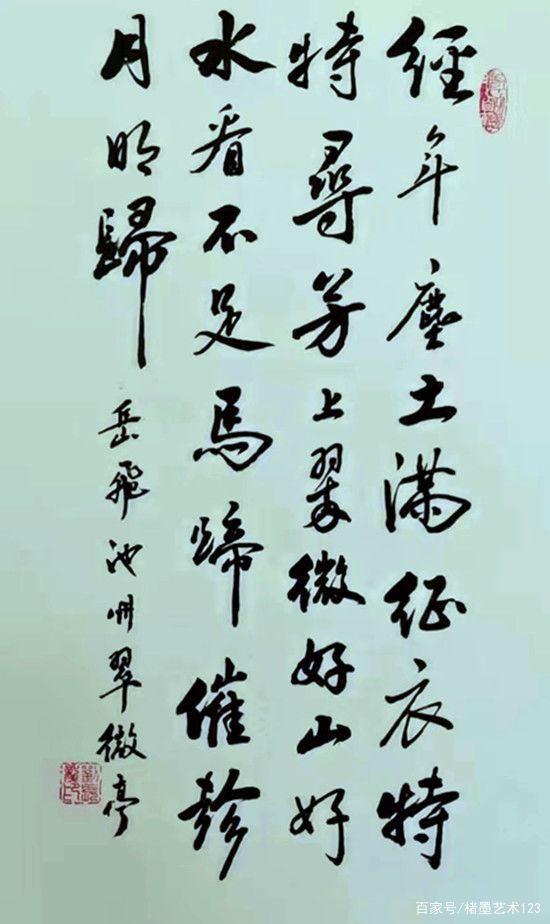 經年塵土滿征衣特
特尋芳上翠微好山好
水看不足馬蹄催趁
月明歸
岳飛池州翠微亭
百家号/楮墨艺术123